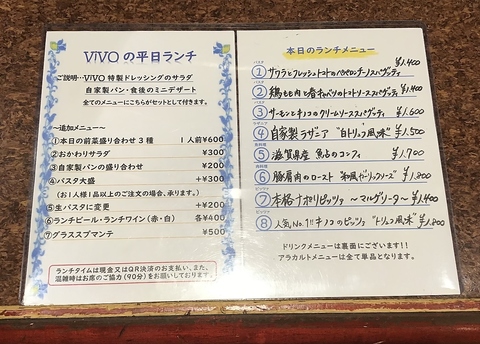 ViVOの平日ランチ
ご説明…ViVO特製ドレッシングのサラダ
自家製パン・食後のミニデザート
全てのメニューにこちらがセットとして付きます。
～追加メニュー～
①本日の前菜盛り合わせ3種 1人前¥600
②おかわりサラダ ¥300
③自家製パンの盛り合わせ ¥200
④パスタ大盛 +¥300
(お1人様1品以上のご注文の場合、承ります。)
⑤生パスタに変更 +¥200
⑥ランチビール・ランチワイン(赤・白) 各¥400
⑦グラススプマンテ ¥500
ランチタイムは現金又はQR決済のお支払い、また、
混雑時はお席のご協力(90分)をお願いしております。
本日のランチメニュー
パスタ
① サワラとフレッシュトマトのペペロンチーノスパゲッティ ¥1,400
パスタ
② 鶏もも肉と春キャベツのトマトソーススパゲッティ ¥1,400
パスタ
③ サーモンとキノコのクリームソーススパゲッティ ¥1,600
④ 自家製ラザニア "白トリュフ風味" ¥1,500
⑤ 滋賀県産 鮎のコンフィ ¥1,700
⑥ 豚肩肉のロースト 和風ガーリックソース ¥1,800
ピッツァ
⑦ 本格ナポリピッツァ ～マルゲリータ～ ¥1,400
ピッツァ
⑧ 人気No.1!! キノコのピッツァ "トリュフ風味" ¥1,800
ドリンクメニューは裏面にございます!!
アラカルトメニューは全て単品となります。